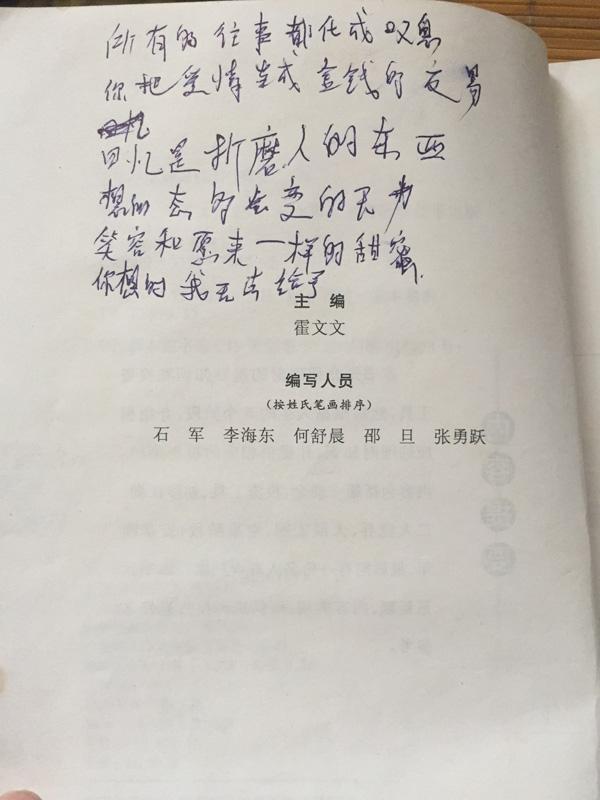 所有的往事都化成叹息
你把爱情当成金钱的交易
回忆是折磨人的东西
想的 的会变的无
笑容和原来一样的甜蜜
你想的我无法给予
主 编
霍文文
编写人员
(按姓氏笔画排序)
石 军 李海东 何舒晨 邵 旦 张勇跃